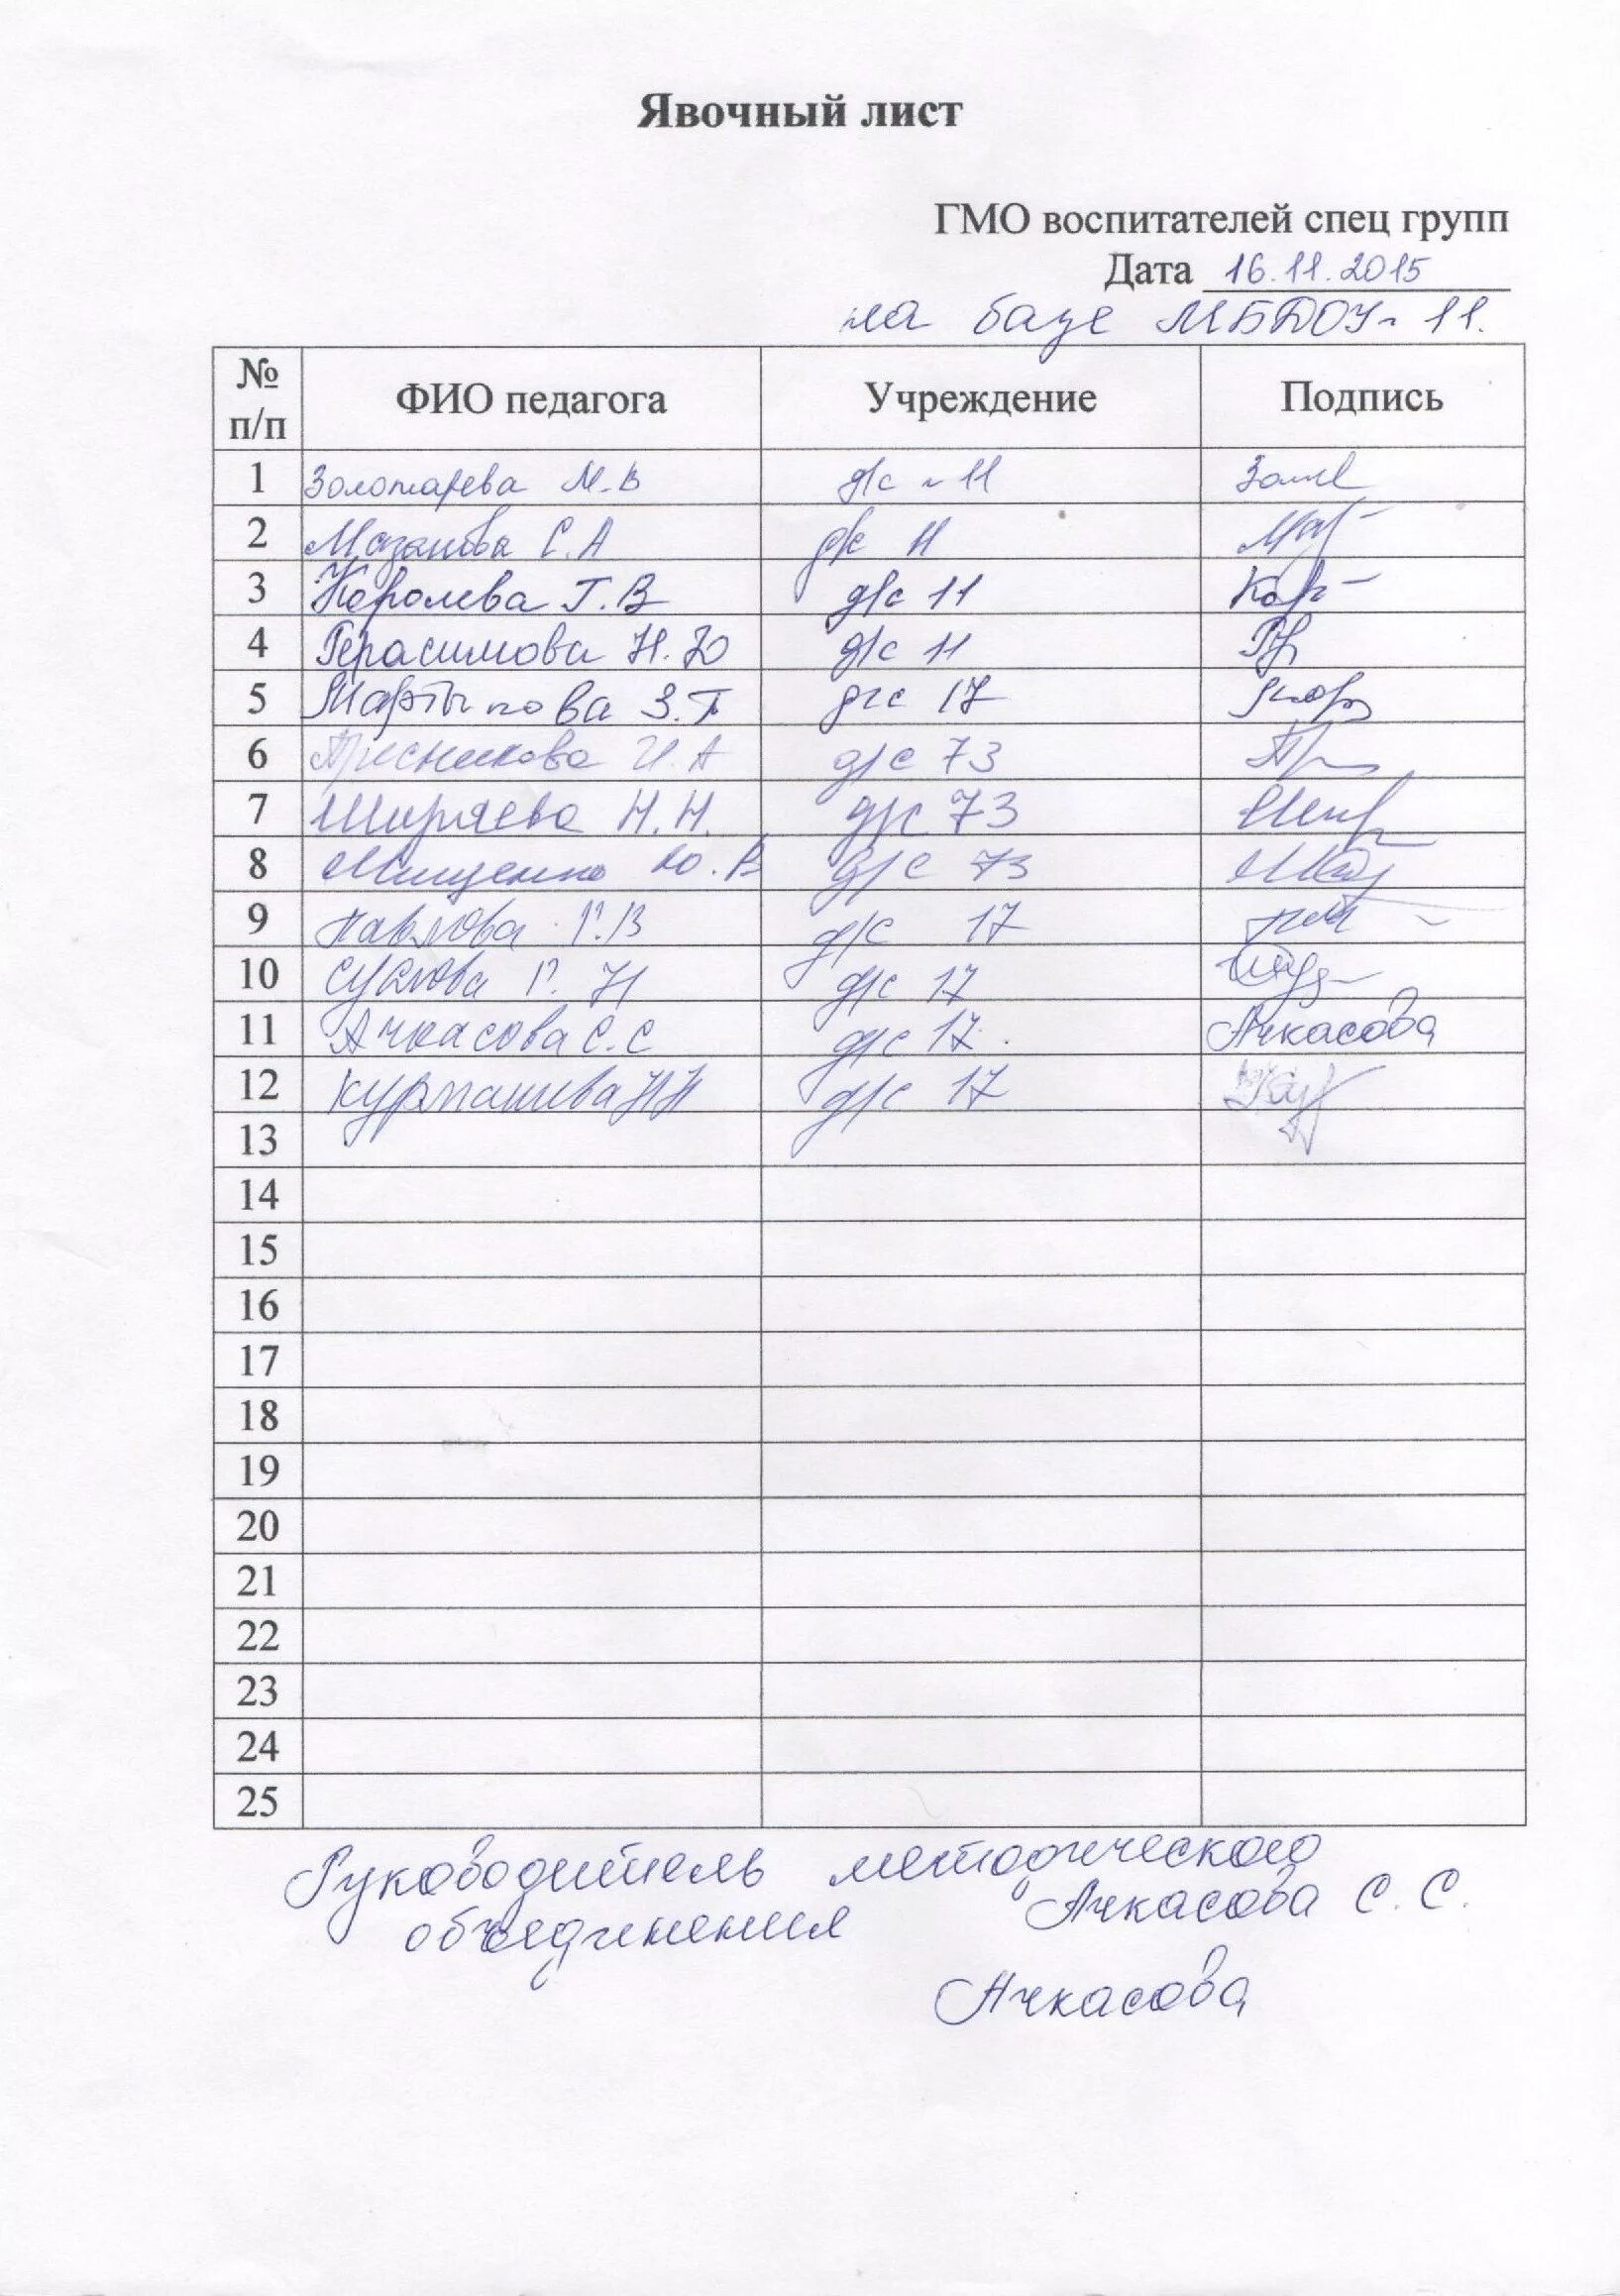 Явочный лист
ГМО воспитателей спец групп
Дата 16.11.2015
на базе МБДОУ 11.
№ п/п ФИО педагога Учреждение Подпись
1 Золотарева М.В д/с 11
2 Мазанова С.А д/с 11
3 Королева Г.В д/с 11
4 Герасимова Н.Ю д/с 11
5 Мартынова З.Г д/с 17
6 И.А д/с 73
7 Ширяева Н.Н. д/с 73
8 Мищенко Ю.В д/с 73
9 Павлова Г.В д/с 17
10 Суслова Г.Н д/с 17
11 Ачкасова С.С д/с 17 Ачкасова
12 НН д/с 17
13
14
15
16
17
18
19
20
21
22
23
24
25
Руководитель методического
объединения Ачкасова С.С.
Ачкасова